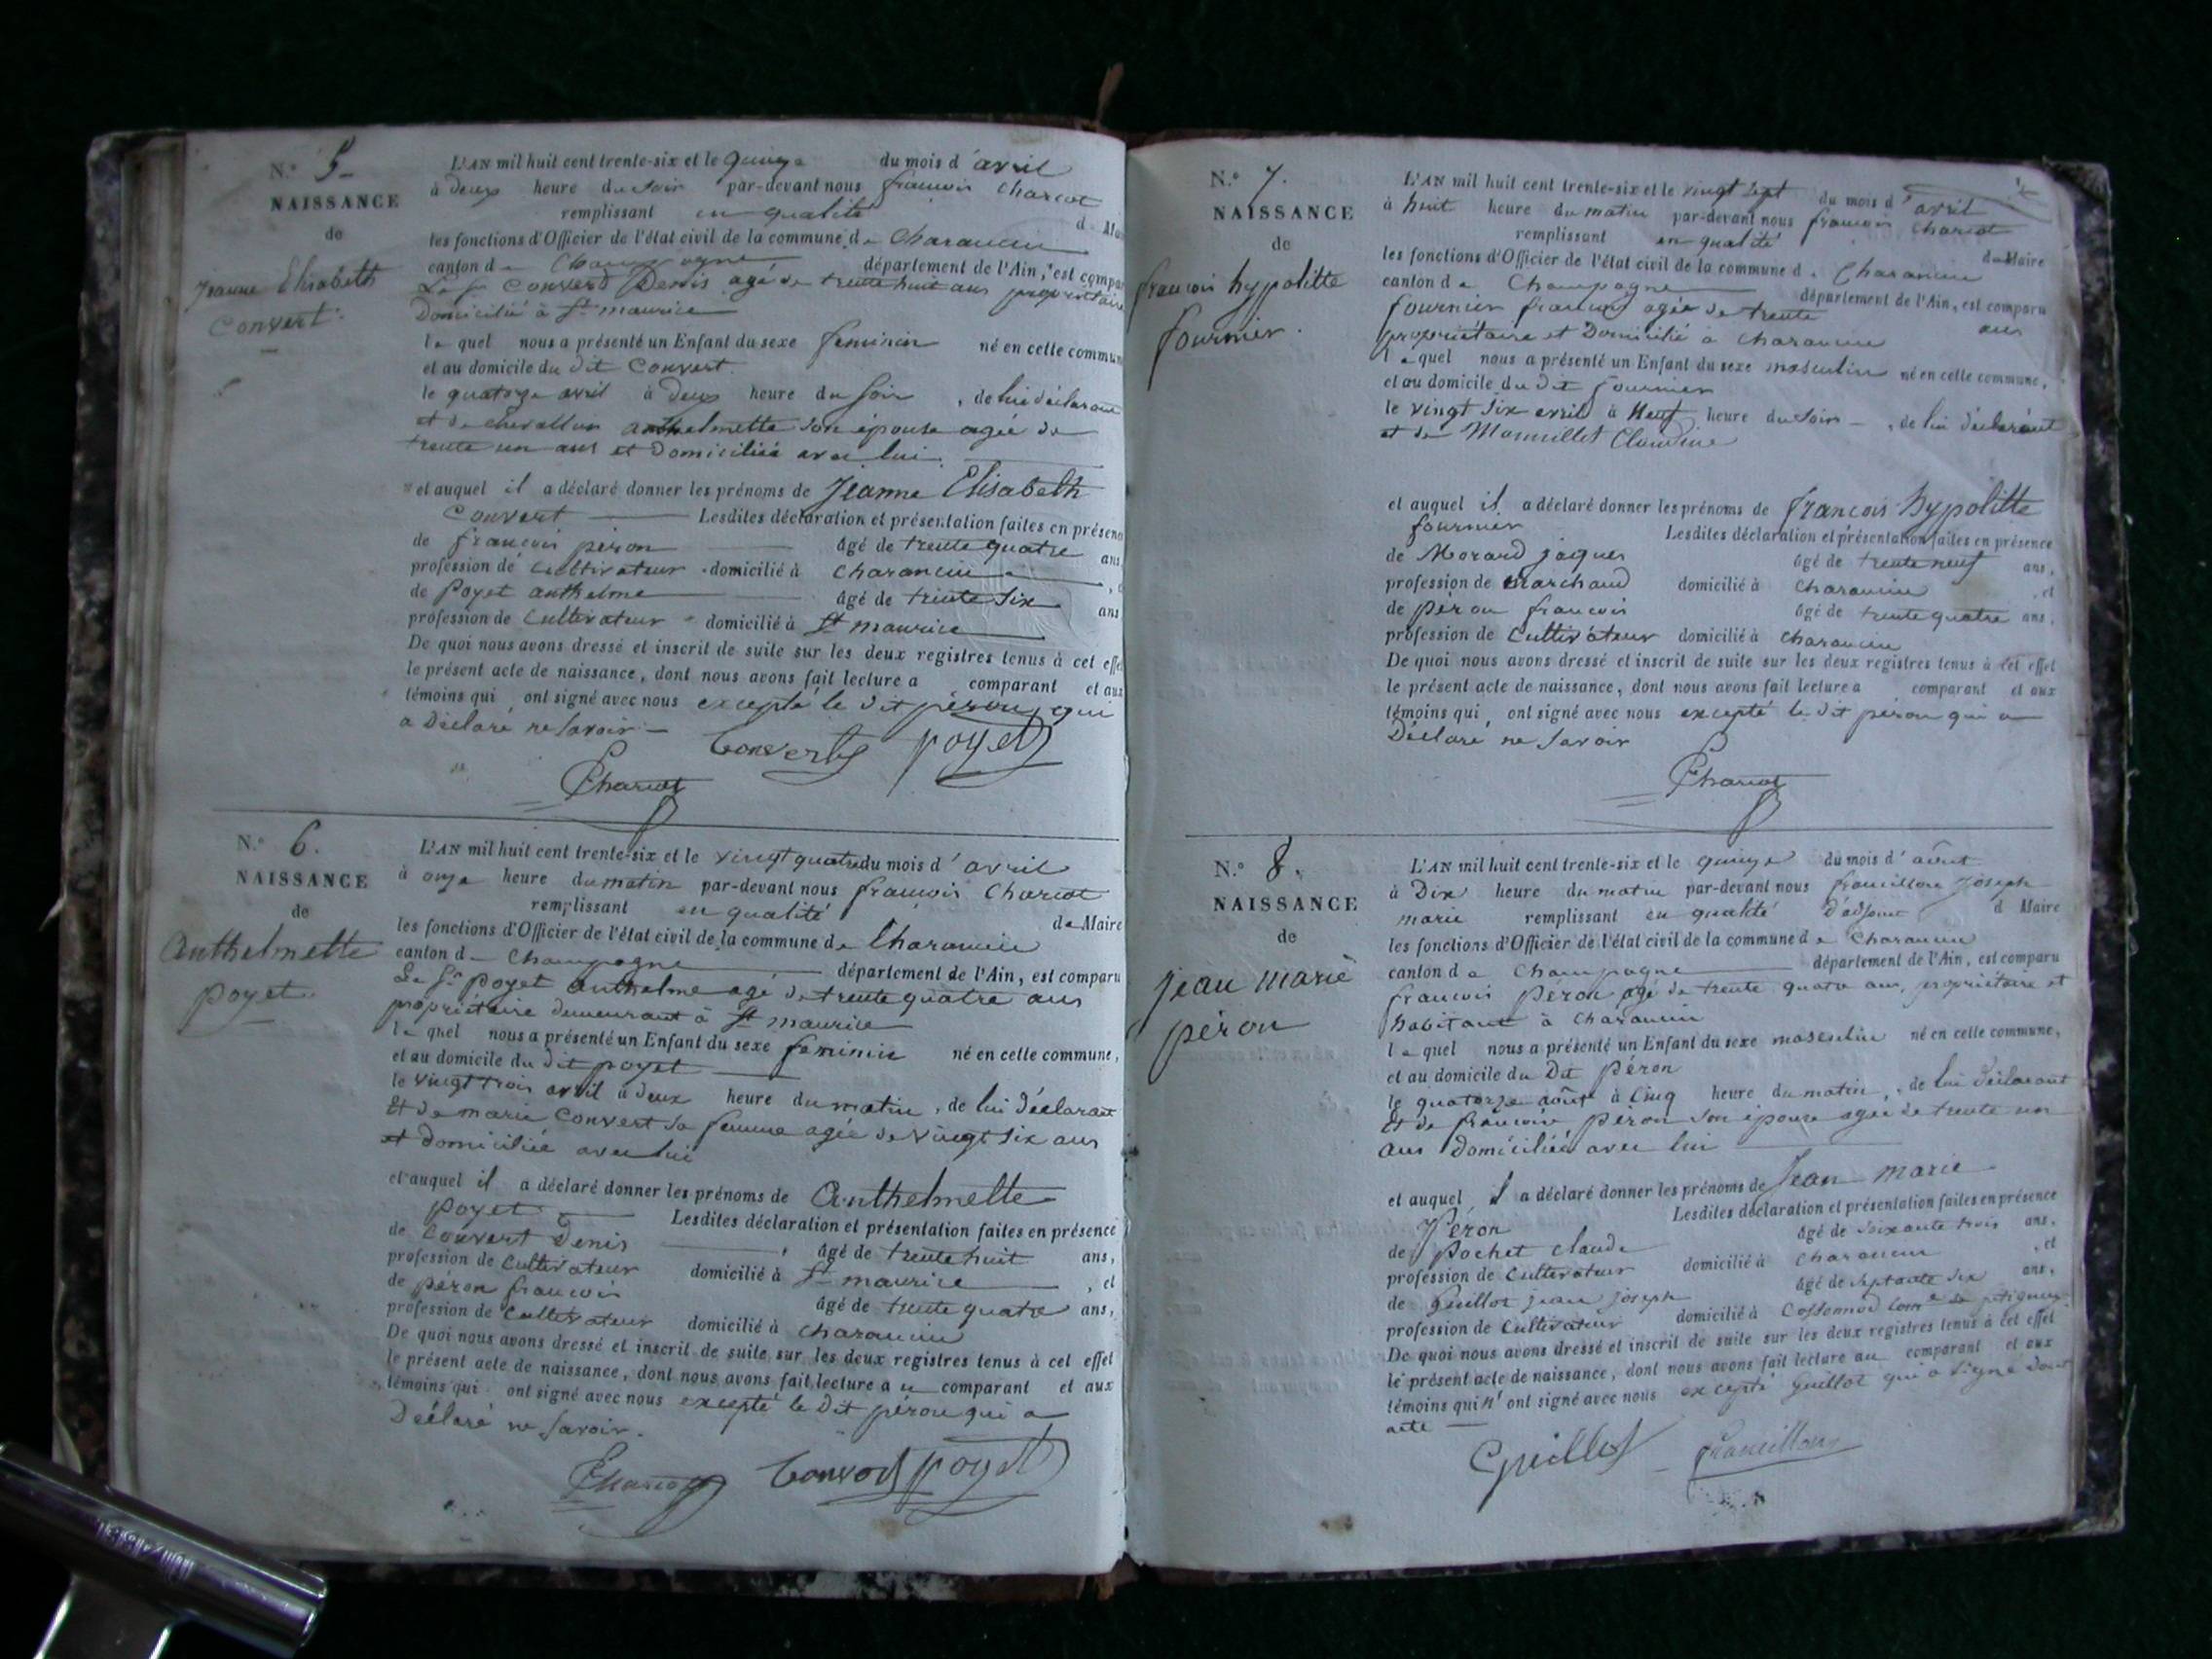 N.° 5
NAISSANCE
de
Jeanne Elisabeth
Convert.
L'AN mil huit cent trente-six et le quinze du mois d'avril
à deux heure du soir par-devant nous francois Chariot
remplissant en qualité d Mai
les fonctions d'Officier de l'état civil de la commune de Charancin
canton de Champagne département de l'Ain, est compar
Le Sr Convert Denis agé de trente huit ans propriétaire
Domicilié à St maurice
le quel nous a présenté un Enfant du sexe feminin né en cette commun
et au domicile du dit Convert.
le quatorze avril à deux heure du soir, de lui déclarant
et de chevallier anthelmette son épouse agée de
trente un ans et domiciliée avec lui.
et auquel il a déclaré donner les prénoms de Jeanne Elisabeth
Convert Lesdites déclaration et présentation faites en présen
de francois péron âgé de trente quatre ans
profession de Cultivateur domicilié à Charancin
de Poyet anthelme âgé de trente six ans
profession de Cultivateur domicilié à St maurice
De quoi nous avons dressé et inscrit de suite sur les deux registres tenus à cet effet
le présent acte de naissance, dont nous avons fait lecture a comparant et aux
témoins qui ont signé avec nous excepté le dit péron, qui
a Déclaré ne savoir
Convert poyet
Chariot
N.° 6.
NAISSANCE
de
Anthelmette
poyet.
L'AN mil huit cent trente-six et le vingt quatre du mois d'avril
à onze heure du matin par-devant nous francois Chariot
remplissant en qualité de Maire
les fonctions d'Officier de l'état civil de la commune de Charancin
canton de Champagne département de l'Ain, est comparu
Le Sr poyet anthelme agé de trente quatre ans
propriétaire demeurant à St maurice
le quel nous a présenté un Enfant du sexe feminin né en cette commune,
et au domicile du dit poyet
le vingt trois avril à deux heure du matin, de lui déclarant
Et de marie Convert sa femme agée de vingt six ans
et domiciliée avec lui
et auquel il a déclaré donner les prénoms de Anthelmette
poyet Lesdites déclaration et présentation faites en présence
de Convert Denis âgé de trente huit ans,
profession de Cultivateur domicilié à St maurice, et
de péron francois âgé de trente quatre ans,
profession de Cultivateur domicilié à Charancin
De quoi nous avons dressé et inscrit de suite sur les deux registres tenus à cet effet
le présent acte de naissance, dont nous avons fait lecture a u comparant et aux
témoins qui ont signé avec nous excepté le dit péron qui a
Déclaré ne savoir.
Chariot Convert poyet
N.° 7.
NAISSANCE
de
francois hypolitte
fournier.
L'AN mil huit cent trente-six et le vingt sept du mois d'avril
à huit heure du matin par-devant nous francois Chariot
remplissant en qualité de Maire
les fonctions d'Officier de l'état civil de la commune d . Charancin
canton de Champagne département de l'Ain, est comparu
fournier francois agée de trente ans
propriétaire et Domicilié à Charancin
le quel nous a présenté un Enfant du sexe masculin né en cette commune,
et au domicile du dit fournier
le vingt six avril à Neuf heure du soir, de lui déclarant
et de Claudine
et auquel il a déclaré donner les prénoms de francois hypolitte
fournier Lesdites déclaration et présentation faites en présence
de Morard jaques âgé de trente neuf ans,
profession de Marchand domicilié à Charancin, et
de péron francois âgé de trente quatre ans,
profession de Cultivateur domicilié à Charancin
De quoi nous avons dressé et inscrit de suite sur les deux registres tenus à cet effet
le présent acte de naissance, dont nous avons fait lecture a comparant et aux
témoins qui ont signé avec nous excepté le dit péron qui a
Déclaré ne savoir
Chariot
N.° 8.
NAISSANCE
de
jean marie
péron
L'AN mil huit cent trente-six et le quinze du mois d'août
à Dix heure du matin par-devant nous francillon Joseph
marie remplissant en qualité d'adjoint d Maire
les fonctions d'Officier de l'état civil de la commune de Charancin
canton de Champagne département de l'Ain, est comparu
francois Péron agé de trente quatre ans, propriétaire et
habitant à Charancin
le quel nous a présenté un Enfant du sexe masculin né en cette commune,
et au domicile du Dit Péron
le quatorze août à Cinq heure du matin, de lui déclarant
Et de francoise Péron son épouse agée de trente un
ans domiciliée avec lui
et auquel il a déclaré donner les prénoms de Jean marie
Péron Lesdites déclaration et présentation faites en présence
de Pochet Claude âgé de soixante trois ans,
profession de Cultivateur domicilié à Charancin, et
de Guillot jean joseph âgé de septante six ans,
profession de Cultivateur domicilié à Cossonod Come de
De quoi nous avons dressé et inscrit de suite sur les deux registres tenus à cet effet
le présent acte de naissance, dont nous avons fait lecture au comparant et aux
témoins qui n'ont signé avec nous excepté Guillot qui a signé dont
acte
Guillot francillon